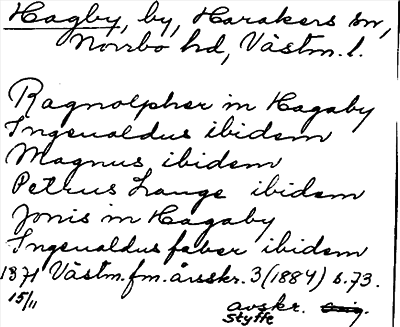 Hagby, by, Harakers sn,
Norrbo hd, Västm. l.
Ragnolpher in Hagaby
Ingeualdus ibidem
Magnus ibidem
Petrus Lange ibidem
Jonis in Hagaby
Ingeualdus faber ibidem
1371 Västm. fm. årsskr. 3 (1884) s. 73.
15/11 avskr. orig.
Styffe